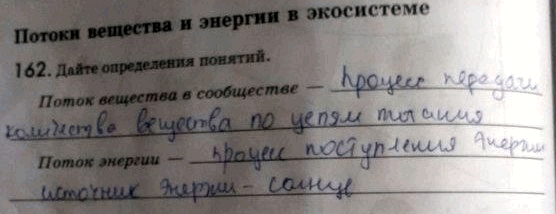 Потоки вещества и энергии в экосистеме
162. Дайте определения понятий.
Поток вещества в сообществе — процесс передачи
количества вещества по цепям питания
Поток энергии — процесс поступления энергии
источник энергии – солнце